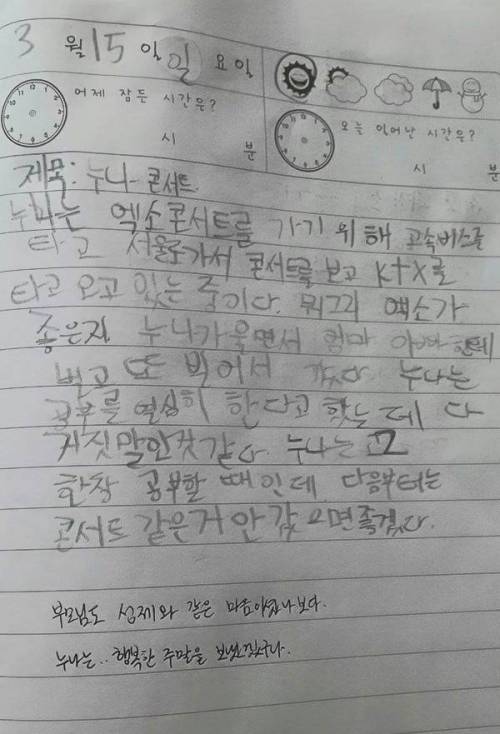 3 월 15 일 일 요일
어제 잠든 시간은?
시 분
오늘 일어난 시간은?
시 분
제목: 누나 콘서트
누나는 엑소콘서트를 가기 위해 고속버스를
타고 서울로가서 콘서트를 보고 KTX를
타고 오고 있는 중이다. 뭐그리 엑소가
좋은지 누나가울면서 엄마 아빠한테
빌고 또 빌어서 갔다. 누나는
공부를 열심히 한다고 했는데 다
거짓말인것같다. 누나는 고2
한창 공부할 때인데 다음부터는
콘서트 같은거 안 갔으면좋겠다.
부모님도 성제와 같은 마음이셨나보다.
누나는.. 행복한 주말을 보냈겠구나.